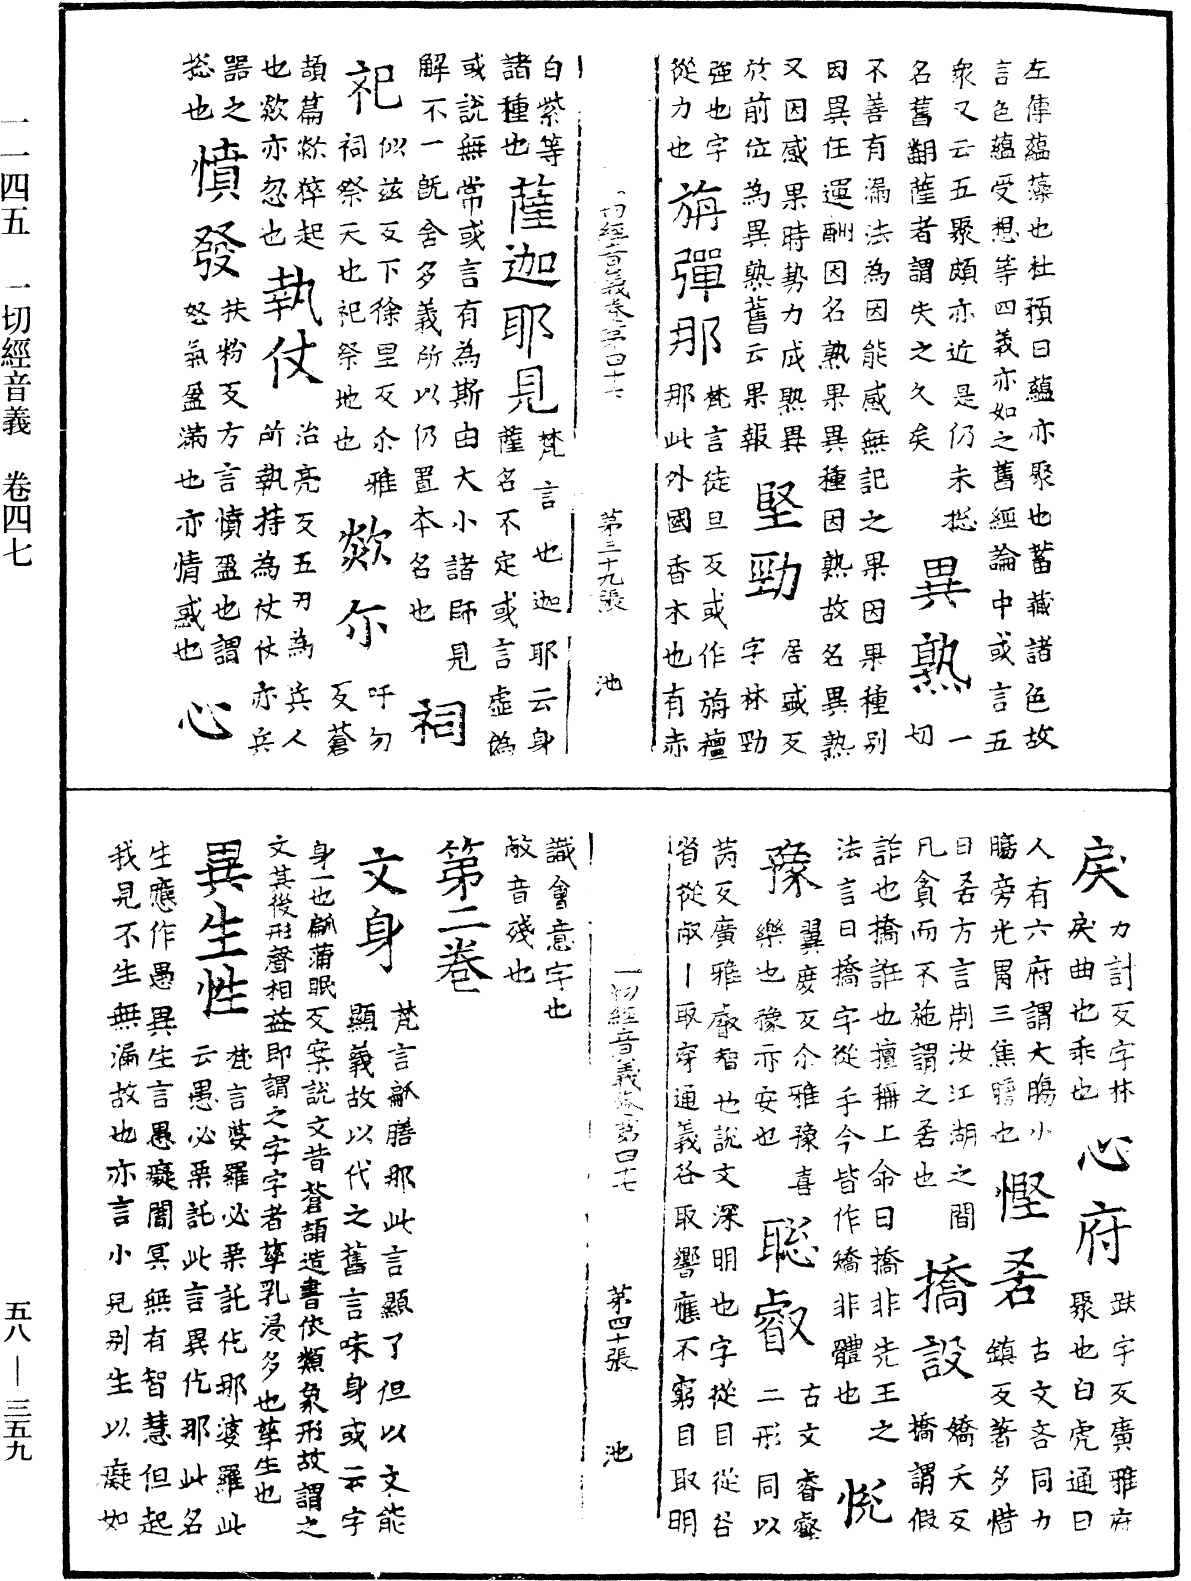 一一四五　一切經音義　卷四七
五八—三五九
左傳蘊藻也杜預曰蘊亦聚也蓄藏諸色故
言色蘊受想等四義亦如之舊經論中或言五
衆又云五聚頗亦近是仍未捴　異熟　一
名舊翻薩者謂失之久矣　切
不善有漏法為因能感無記之果因果種別
因異任運酬因名熟果異種因熟故名異熟
又因感果時勢力成熟異　堅勁　居盛反
於前位為異熟舊云果報　字林勁
強也字　旃彈那　梵言徒旦反或作旃檀
從力也　那此外國香木也有赤
切經音義卷第四十七　第三十九張　池
白紫等　薩迦耶見　梵言也迦耶云身
諸種也　薩名不定或言虛偽
或說無常或言有為斯由大小諸師見
解不一旣舍多義所以仍置本名也　祠
祀　似茲反下徐里反尒雅　欻尒　吁勿
祠祭天也祀祭地也　反蒼
頡篇欻猝起　執仗　治亮反五刃為兵人
也欻亦忽也　所執持為仗仗亦兵
器之　憤發　扶粉反方言憤盈也謂
捴也　怒氣盈滿也亦情惑也　心
戾　力計反字林　心府　趺宇反廣雅府
戾曲也乖也　聚也白虎通曰
人有六府謂大腸小　慳悋　古文吝同力
腸旁光胃三焦膽也　鎮反著多惜
曰悋方言荊汝江湖之間　撟設　嬌夭反
凡貪而不施謂之悋也　撟謂假
詐也撟誑也擅稱上命曰撟非先王之
法言曰撟字從手今皆作矯非體也　悅
豫　翼度反尒雅豫喜　聡叡　古文睿壡
樂也豫亦安也　二形同以
芮反廣雅叡智也說文深明也字從目從谷
省從𣦼取穿通義谷取響應不窮目取明
一切經音義卷第四十七　第四十張　池
識會意字也
𣦼音殘也
第二卷
文身　梵言䘚膳那此言顯了但以文能
顯義故以代之舊言味身或云字
身一也䘚蒲眠反案說文昔蒼頡造書依類象形故謂之
文其後形聲相益即謂之字字者孳乳浸多也孳生也
異生性　梵言婆羅必栗託仡那婆羅此
云愚必栗託此言異仡那此名
生應作愚異生言愚癡闇冥無有智慧但起
我見不生無漏故也亦言小兒別生以癡如